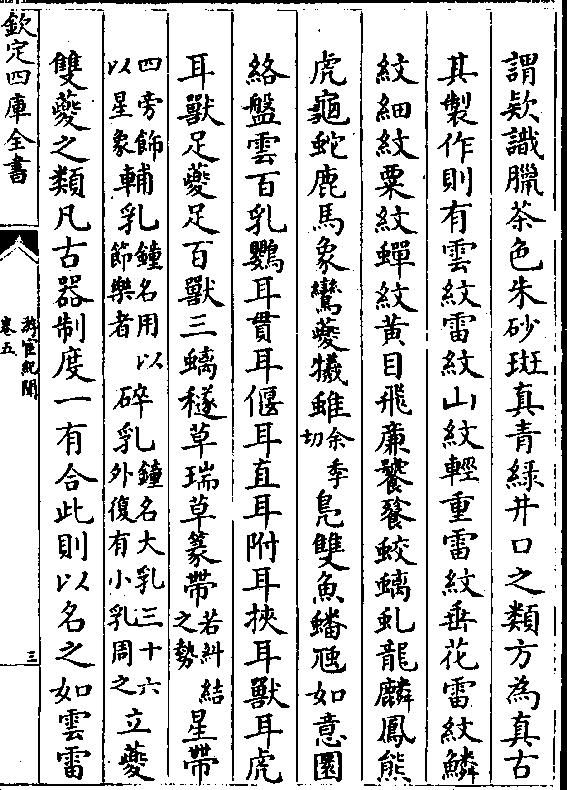 謂欵識臘茶色朱砂斑真青緑井口之類方為真古
其製作則有雲紋雷紋山紋輕重雷紋垂花雷紋鱗
紋細紋粟紋蟬紋黄目飛亷饕餮蛟螭虬龍麟鳳熊
虎龜蛇鹿馬象鸞夔犧蜼余季切鳬雙魚蟠虺如意圜
絡盤雲百乳鸚耳貫耳偃耳直耳附耳挾耳獸耳虎
耳獸足夔足百獸三螭穟草瑞草篆帶若糾結之勢星帶
四旁飾以星象輔乳鐘名用以節樂者碎乳鐘名大乳三十六外復有小乳周之立夔
雙夔之類凡古器制度一有合此則以名之如雲雷
欽定四庫全書
游宦紀聞
卷五
三